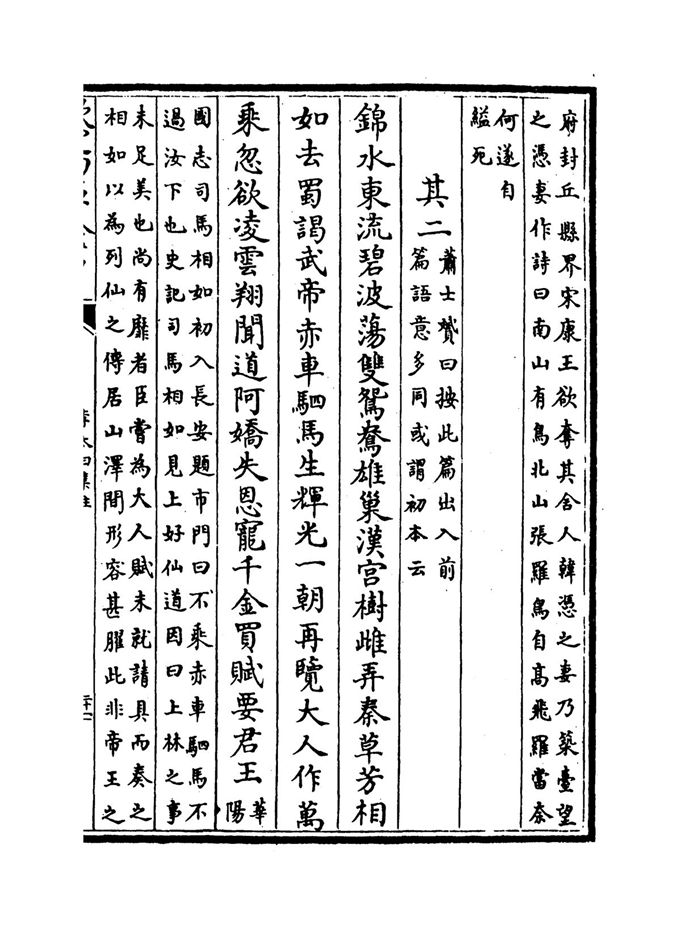 府封丘縣界宋康王欲奪其舍人韓憑之妻乃築臺望
之憑妻作詩曰南山有鳥北山張羅鳥自髙飛羅當奈
何遂自
縊死
其二
蕭士贇曰按此篇出入前
篇語意多同或謂初本云
錦水東流碧波蕩雙鴛鴦雄巢漢宮樹雌弄秦草芳相
如去蜀謁武帝赤車駟馬生輝光一朝再覽大人作萬
乘忽欲凌雲翔聞道阿嬌失恩寵千金買賦要君王
華
陽
國志司馬相如初入長安題市門曰不乘赤車駟馬不
過汝下也史記司馬相如見上好仙道因曰上林之事
未足美也尚有靡者臣嘗為大人賦未就請具而奏之
相如以為列仙之傳居山澤間形容甚臞此非帝王之
李太白集注